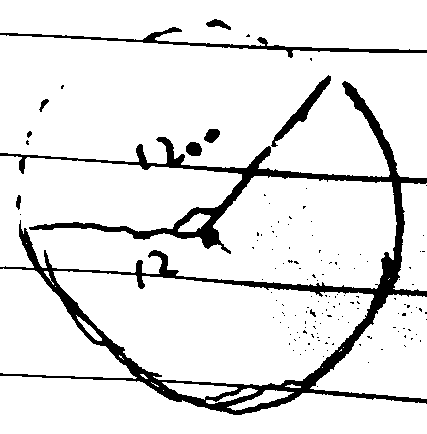 120°
12